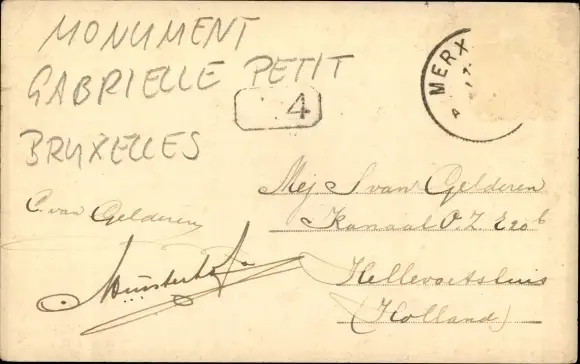 MONUMENT
GABRIELLE PETIT
BRUXELLES
4
MERX
C. van Gelderen
Munsterhof
Mej. S van Gelderen
Kanaal O.Z. E 20 b
Hellevoetsluis
(Holland)